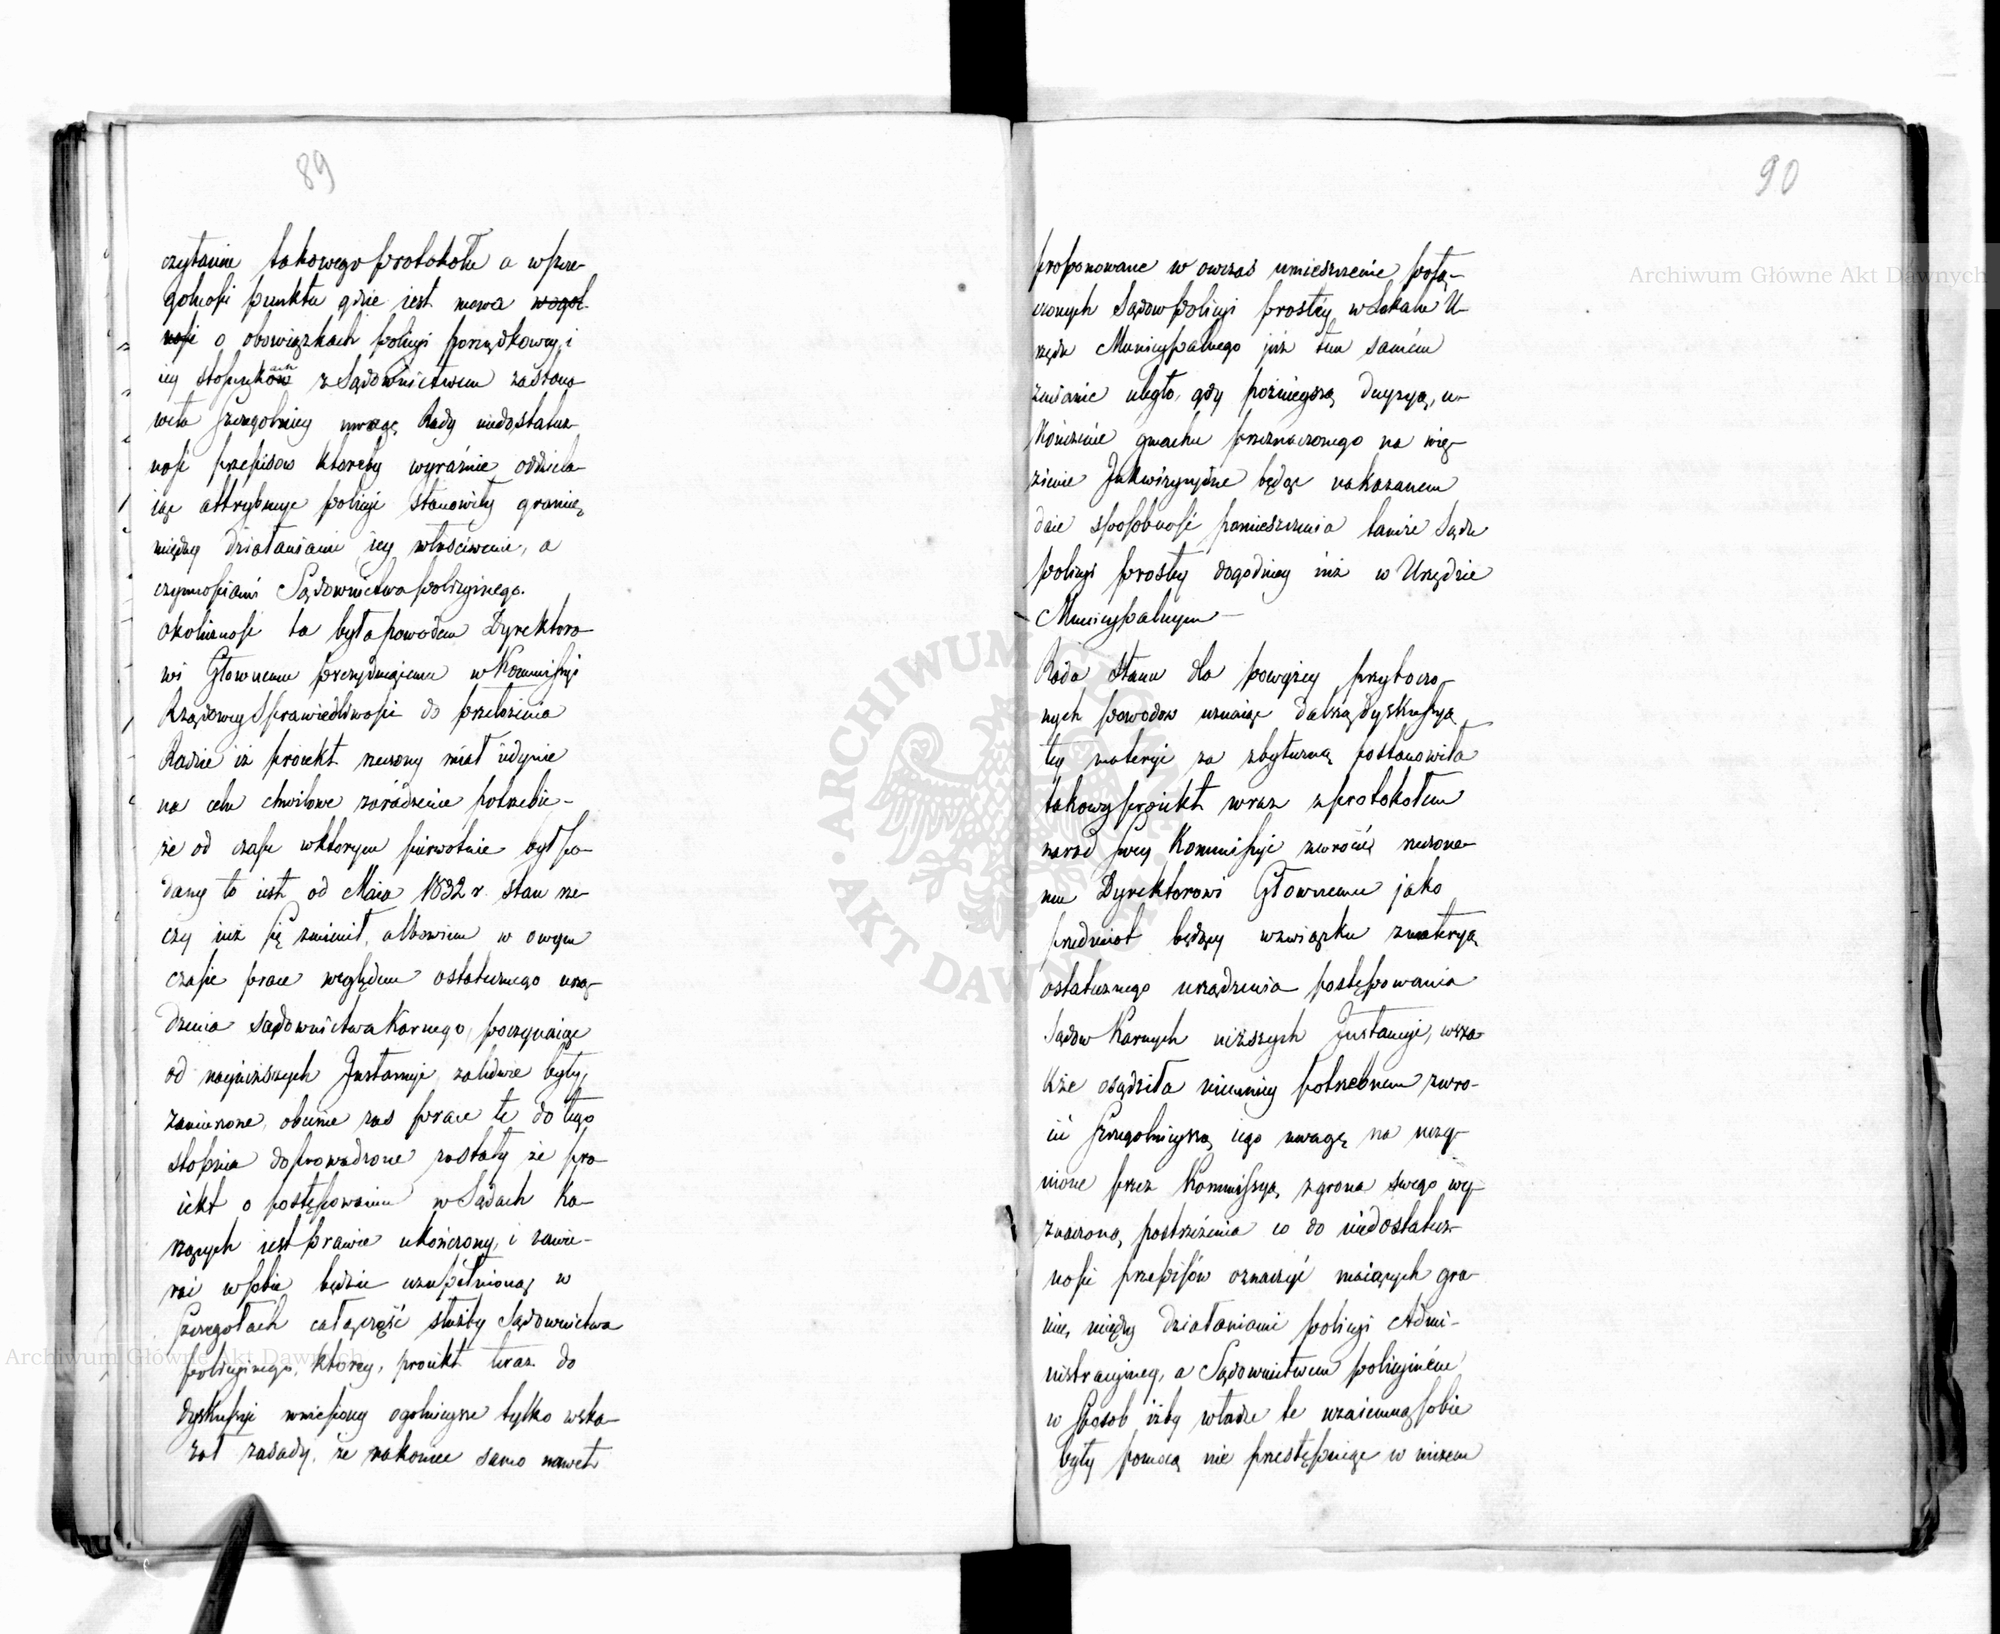 89
czytanie takowego protokołu a wszcze-
golności punktu gdzie iest mowa wogol-
ności o obowiązkach policyi porządkowey, i
iey stosunkach z Sądownictwem zastano-
wiła szczegolniey uwagę Rady niedostatecz-
ność przepisow ktoreby wyraźnie oddziela-
iąc attrybucye policyi stanowiły granicę
między działaniami iey właściwemi, a
czynnościami Sądownictwa policyinego.
Okoliczność ta była powodem Dyrektoro-
wi Głownemu prezyduiącemu w Kommissyi
Rządowey Sprawiedliwości do przełożenia
Radzie iż proiekt rzeczony miał iedynie
na celu chwilowe zaradzenie potrzebie-
że od czasu wktorym pierwotnie był po-
dany to iest od Maia 1832 r. stan rze-
czy iuż się zmienił, albowiem w owym
czasie prace względem ostatecznego urzą-
dzenia sądownictwa Karnego, poczynaiąc
od nayniższych Instancyi, zaledwie były
zamierzone, obecnie zas prace te do tego
stopnia doprowadzone zostały że pro-
iekt o postępowaniu w Sądach Ka-
rzących iest prawie ukończony, i zawie-
rać w sobie będzie uzupełnioną w
szczegołach całą część służby Sądownictwa
policyinego, ktorey, proiekt teraz do
dyskussyi wniesiony ogolnieysze tylko wska-
zał zasady, że nakoniec samo nawet
90
proponowane w owczas umieszczenie połą-
czonych Sądow policyi prostéy w Lokalu U-
rzędu Municypalnego już tem samém
zmianie uległo, gdy poźnieyszą decyzyą, u-
kończenie gmachu przeznaczonego na wię-
zienie Inkwizycyine będąc nakazanem
daie sposobność pomieszczenia tamże Sądu
policyi prostey dogodniey niż w Urzędzie
Municypalnym –
Rada Stanu dla powyżey przytoczo-
nych powodow uznaiąc dalszą dyskussyą
tey materyi za zbyteczną postanowiła
takowy proiekt wraz z protokołem
narad swey Kommissyi zwrócić rzeczone-
mu Dyrektorowi Głownemu jako
przedmiot będący wzwiązku z materyą
ostatecznego urządzenia postępowania
Sądow Karnych niższych Instancyi, wsza-
kże osądziła niemniey potrzebnem zwro-
cić szczegolnieyszą iego uwagę na uczy-
nione przez Kommissyą z grona swego wy-
znaczoną postrzeżenia co do niedostatecz-
ności przepisów oznaczyć maiących gra-
nice między działaniami policyi Admi-
nistracyiney, a Sądownictwem policyiném
w sposob iżby władze te wzaiemną sobie
były pomocą nie przestępuiąc w niczem